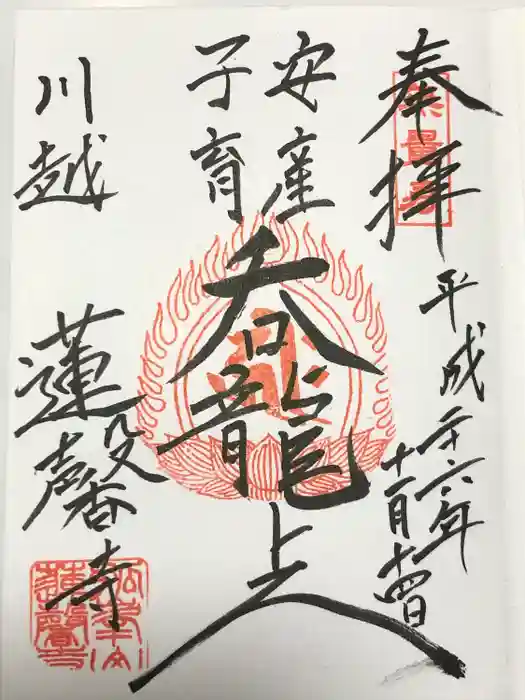 奉拝
平成二十六年
十一月十四日
安産
子育
呑龍上人
川越
蓮馨寺